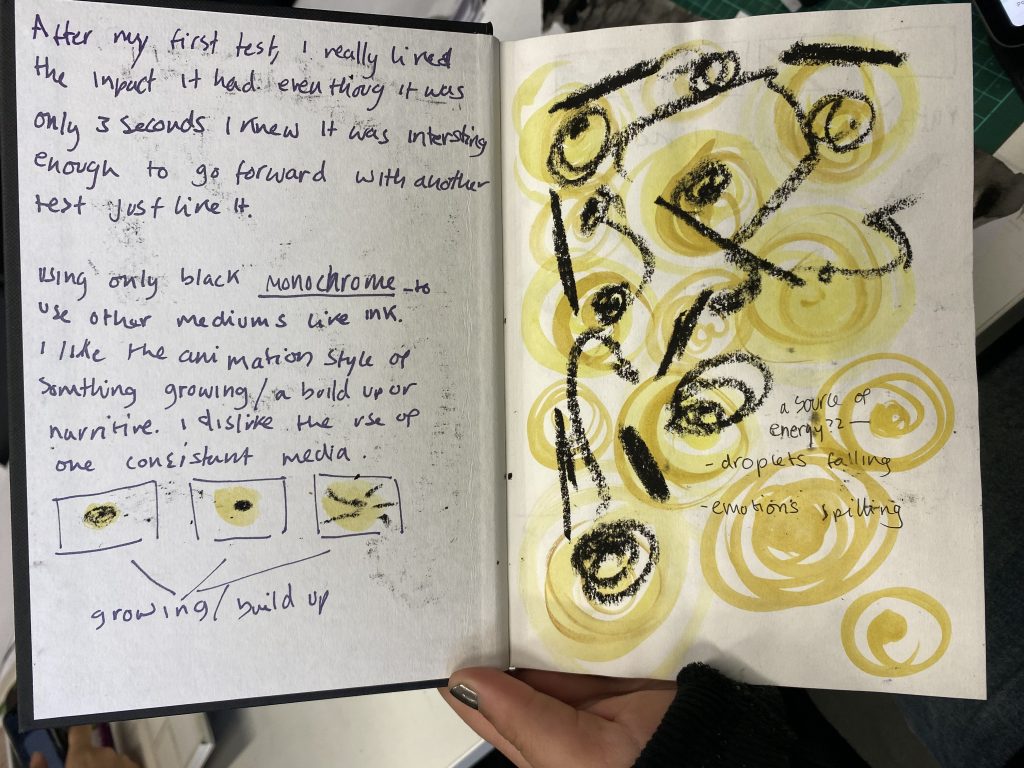 After my first test, I really liked
the impact it had. even thoug it was
only 3 seconds I knew it was intersting
enough to go forward with another
test just like it.
using only black monochrome - to
use other mediums like ink.
I like the animation style of
somthing growing / a build up or
narritive. I dislike the use of
one consistant media.
growing / build up
a source of
energy?? —
- droplets falling
- emotions spilling